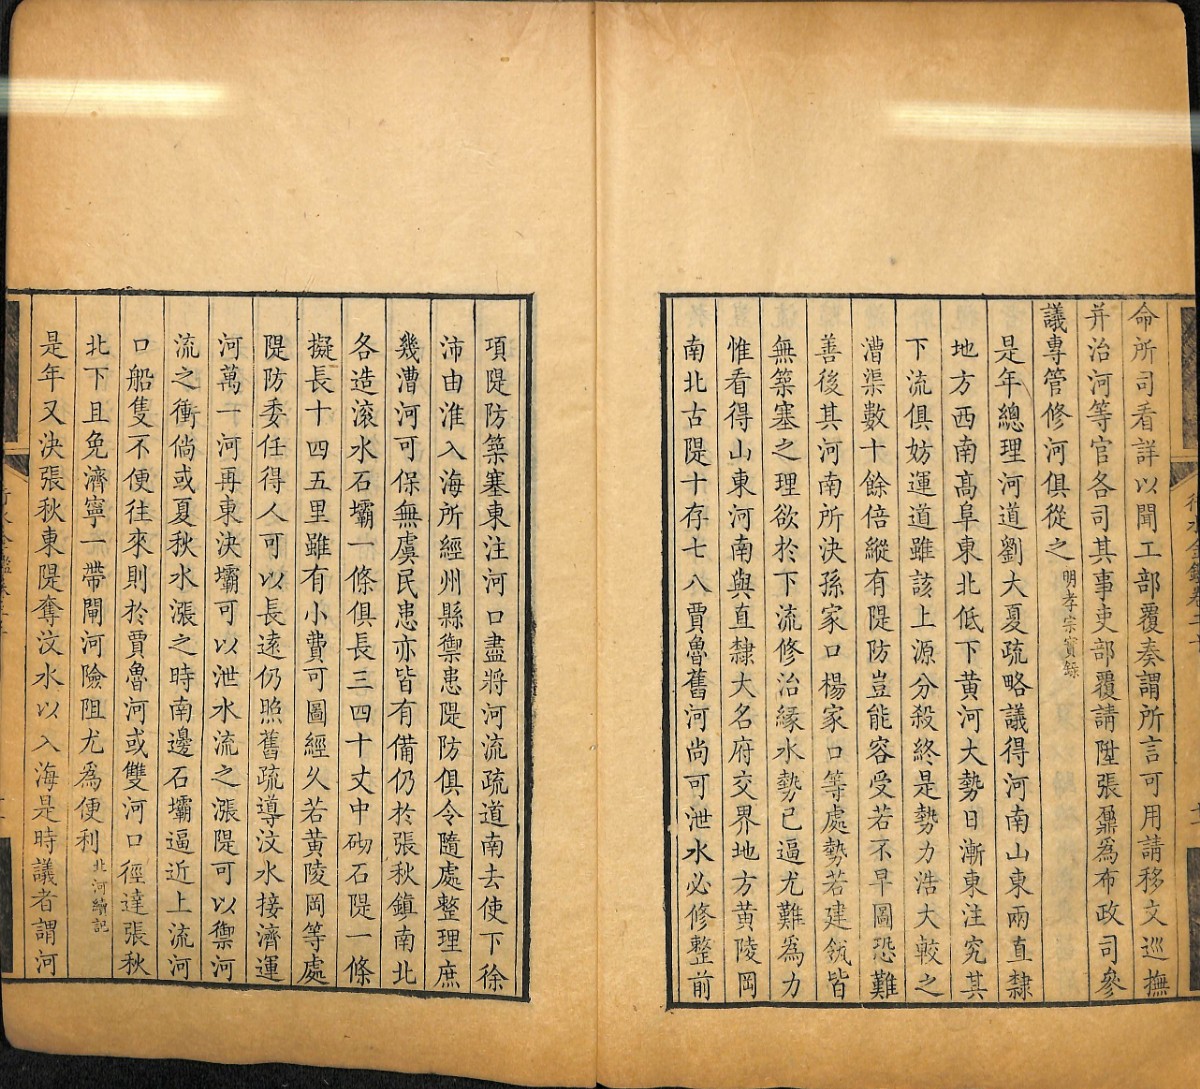 命所司看詳以聞工部覆奏謂所言可用請移文巡撫
并治河等官各司其事吏部覆請陞張鼐為布政司參
議專管修河俱從之明孝宗實錄
是年總理河道劉大夏疏略議得河南山東兩直隸
地方西南高阜東北低下黄河大勢日漸東注究其
下流俱妨運道雖該上源分殺終是勢力浩大較之
漕渠數十餘倍縱有隄防豈能容受若不早圖恐難
善後其河南所決孫家口楊家口等處勢若建瓴皆
無築塞之理欲於下流修治縁水勢已逼尤難為力
惟看得山東河南與直隸大名府交界地方黄陵岡
南北古隄十存七八賈魯舊河尚可泄水必修整前
項隄防築塞東注河口盡將河流疏道南去使下徐
沛由淮入海所經州縣禦患隄防俱令隨處整理庶
幾漕河可保無虞民患亦皆有備仍於張秋鎮南北
各造滚水石壩一條俱長三四十丈中砌石隄一條
擬長十四五里雖有小費可圖經久若黄陵岡等處
隄防委任得人可以長遠仍照舊疏導汶水接濟運
河萬一河再東決壩可以泄水流之漲隄可以禦河
流之衝倘或夏秋水漲之時南邊石壩逼近上流河
口船隻不便往來則於賈魯河或雙河口徑達張秋
北下且免濟寧一帶閘河險阻尤爲便利北河續記
是年又決張秋東隄奪汶水以入海是時議者謂河